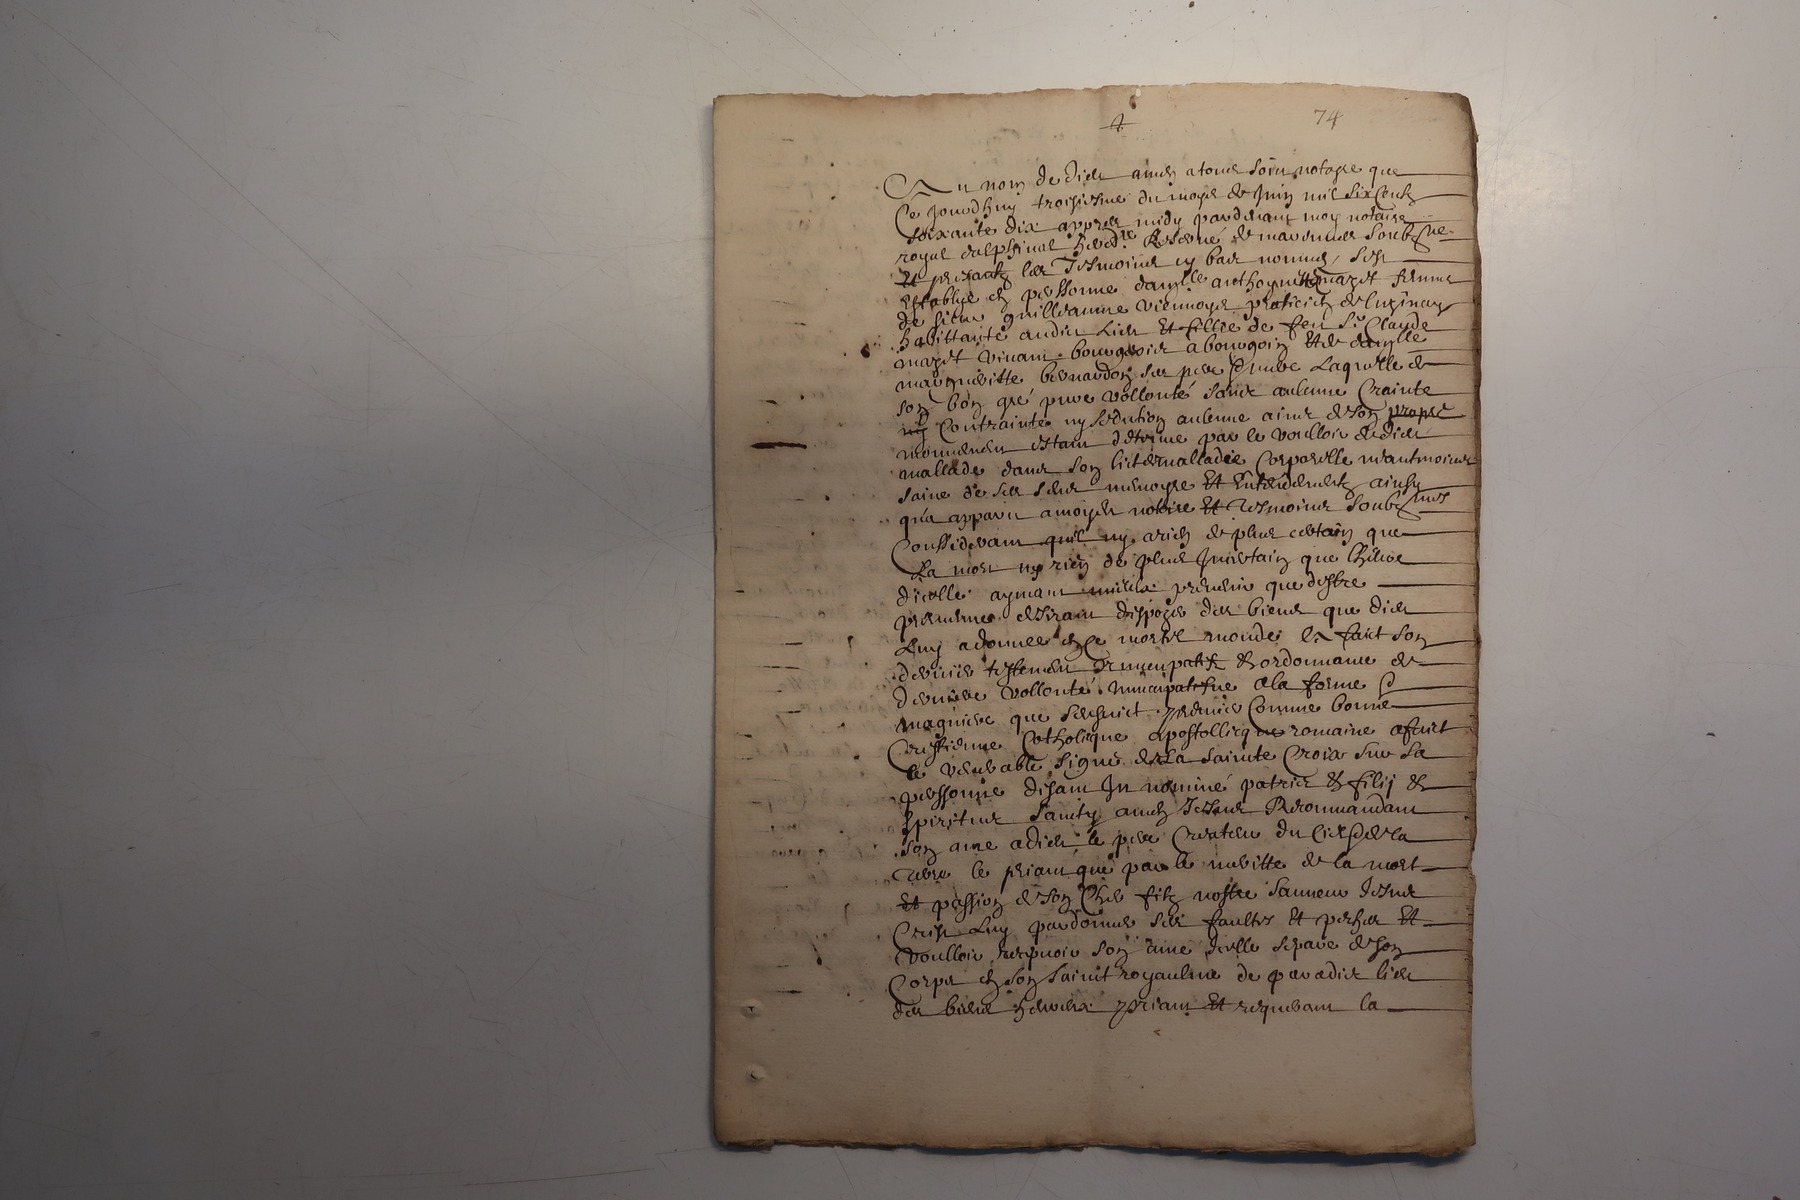 74
Au nom de dieu amen a tous soict notoyre que
Ce Jourdhuy troisiesme du moys de Juin mil six Centz
soixante dix appres midy pardevant moy notaire
royal dalphinal hered.re Reservé de soubz.ne
Et presantz les Tesmoins cy bas nommes, sest
establye en personne damlle anthoynette mazet femme
de sieur guilleaume viennoys praticien de
habittante audit Lieu Et fillie de feu Sr Claude
mazet vivant bourgeois a bourgoin Et de damlle
margueritte bernardon ses pere & mere Laquelle de
son bon gré pure vollonté sans aulcune Crainte
ny Contrainte ny seduction aulcune ains de son propre
mouvement estant detenue par le voulloir de dieu
mallade dans son lict de malladie Corporelle neantmoins
saine de ses sens memoyre Et Entendement ainsy
qua apparu a moydit notaire Et Tesmoins soubz.nes
Considerant quil ny a rien de plus certain que
La mort ny rien de plus Incertain que Lheure
dicelle aymant mieux prevenir que destre
prevenue desirant dispozer des biens que dieu
Luy a donnes en ce mortel monde a faict son
dernier testement nuncupatif & ordonnance de
derniere vollonté nuncupatifue a la forme &
magniere que sensuict premier Comme bonne
Crestienne Catholicque apostollicque romaine a faict
le venerable signe de La sainte Croix sur sa
personne disant In nominé patris & filij &
spiritus sancty amen Jesus Recommandant
son ame a dieu le pere Createur du Ciel & de la
terre le priant que par le meritte de la mort
Et passion de son Cher filz nostre sauveur Jesus
Crist Luy pardonner ses faultes Et pechez Et
voulloir recepvoir son ame Icelle separe de son
Corps en son sainct royaulme de paradis lieu
des biens heureux priant Et requerant la